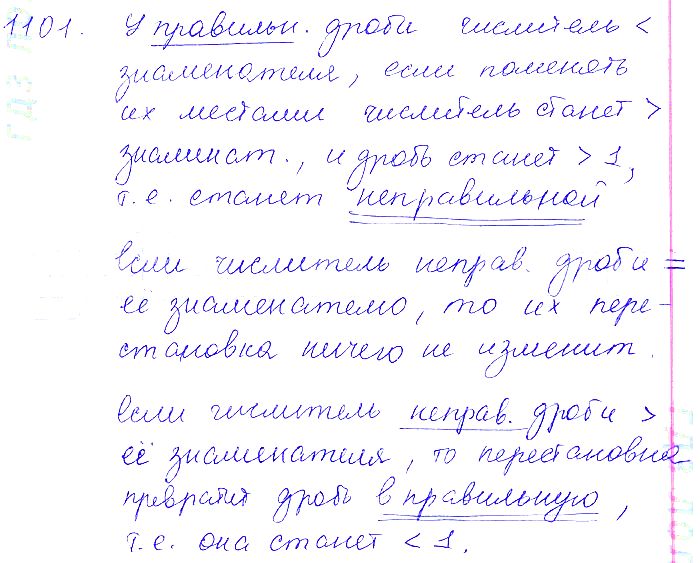 1101. У правильн. дроби числитель <
знаменателя, если поменять
их местами числитель станет >
знаминат., и дробь станет > 1,
т.е. станет неправильной
Если числитель неправ. дроби =
её знаменателю, то их пере-
становка ничего не изменит.
Если числитель неправ. дроби >
её знаменателя, то перестановка
превратит дробь в правильную,
т.е. она станет < 1.